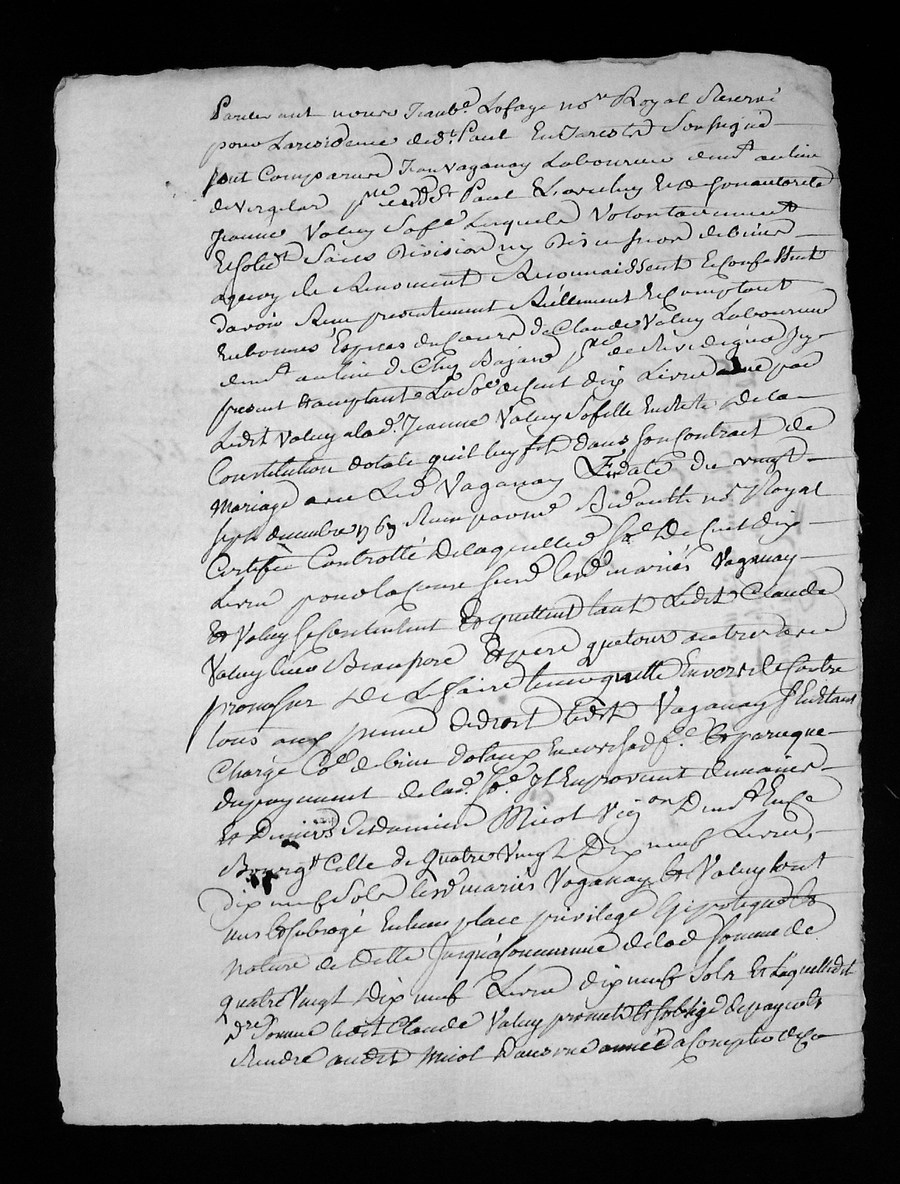 Pardevant nous Jean Lafaye no.re Royal Reservé
pour La residence de St Paul En Jarest Soussigné
sont Comparus Jean Vaganay Laboureur demt au lieu
de Vergelas St Paul de son autorité
Jeanne Valuy Sa fe Lesquels Volontairement
Et solidt Sans Division ny Discussion de biens
a quoy ils Renoncent Reconnaissent Et Confessent
davoir Reçu presentement Réellement Et Comptant
En bonnes Especes du Cours de Claude Valuy Laboureur
demt au lieu de Chez Bajard psse de Rivedegier icy
present Et acceptant La So.e de Cent dix Livres par
Ledit Valuy a lad. Jeanne Valuy Sa fille En reste de la
Constitution dotale quil luy fit dans Son Contrat de
Mariage avec Led Vaganay En date du vingt
sept decembre 1763 Reçu par Me no.e Royal
Certifié Controllé De laquelle So.e De Cent dix
Livres pour la Cause Susd. lesd mariés Vaganay
Et Valuy Se Contentent Et quittent tant Ledit Claude
Valuy leur Beaupere Et pere que tous autres avec
promesse De Le faire tenir quitte Envers Et Contre
tous aux peines de droit Ledit Vaganay S'En Etant
Chargé Co.e de bien dotaux Envers Sad. fe. Et parceque
du payement de lad. So.e Il En provient des mains
Et Deniers de Damien Micol Vig.on Demt
Bourgt Celle de Quatre Vingt Dix neuf Livres
dix neuf Sols lesd mariés Vaganay Et Valuy l'ont
mis Et Subrogé En leur place privilege hipoteque Et
nature de dette Jusqu'a Concurrence de lad Somme de
Quatre Vingt Dix neuf Livres dix neuf Sols Et Laquelle dit
Somme ledit Claude Valuy promet Et S'oblige de payer Et
Rendre audit Micol Dans une année a Compter de Ce